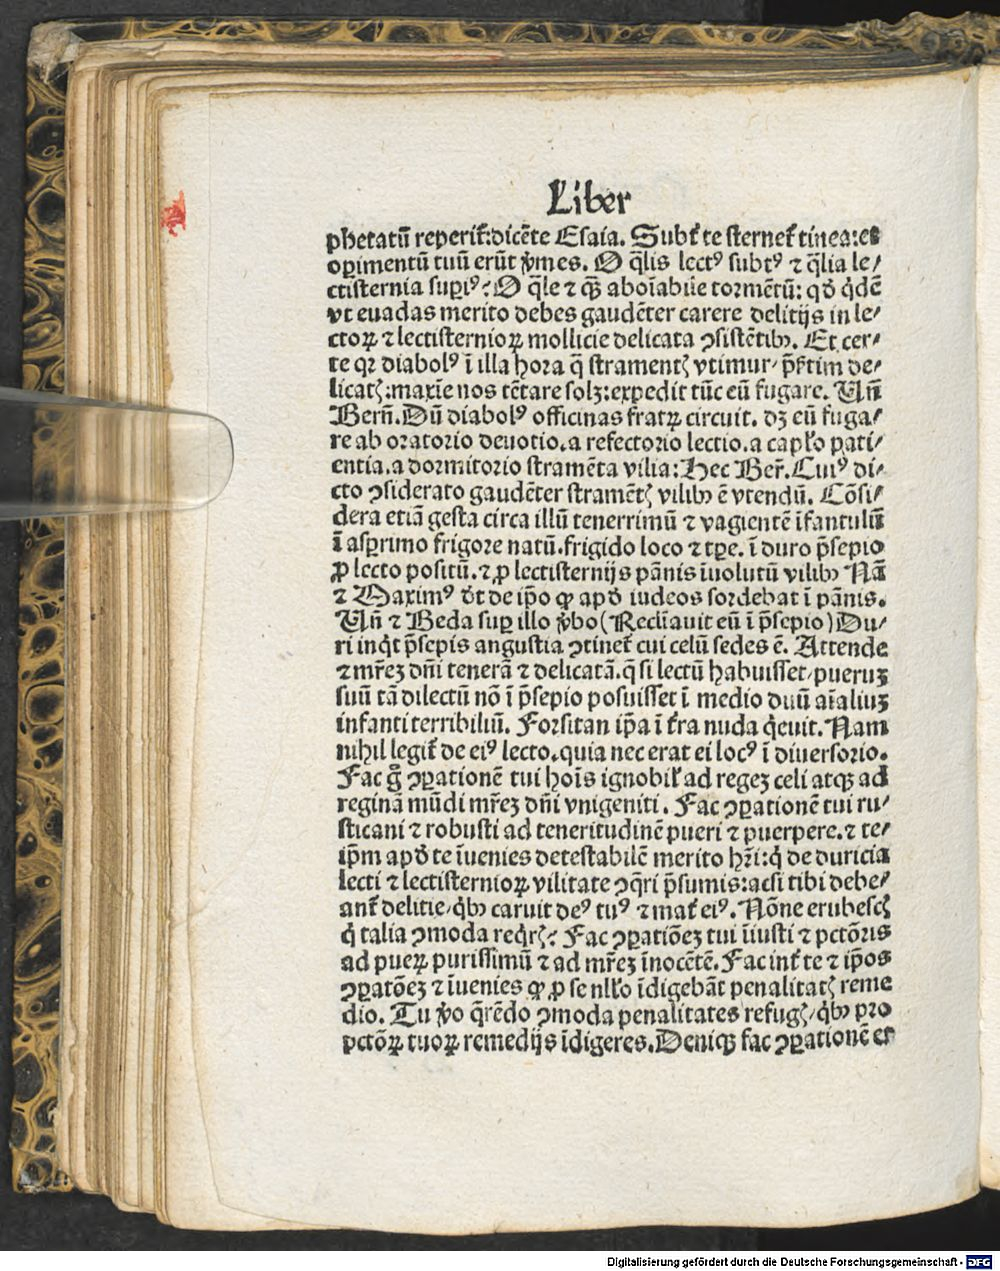 Liber
phetatū reperit᷑:dicēte Esaia. Subt᷑ te sternet᷑ tinea:et
oꝑimentū tuū erūt v̓mes. O q̄lis lectꝰ subtꝰ ⁊ q̄lia le/
ctisternia suꝑiꝰ? O q̄le ⁊ qꝫ aboīabile tormētū: qd̓ q̓dē
vt euadas merito debes gaudēter carere delitijs in le/
ctoꝝ ⁊ lectisternioꝝ mollicie delicata ꝯsistētibꝰ. Et cer/
te qꝛ diabolꝰ ī illa hora q̄ stramentꝭ vtimur, p̄s̓tim de/
licatꝭ:maxīe nos tētare solꝫ:expedit tūc eū fugare. Uñ
Berñ. Dū diabolꝰ officinas fratꝝ circuit. dꝫ eū fuga/
re ab oratorio deuotio.a refectorio lectio.a capl̓o pati/
entia.a dormitorio stramēta vilia:Hec Ber̃. Cuiꝰ di/
cto ꝯsiderato gaudēter stramētꝭ vilibꝰ ē vtendū. Cōsi/
dera etiā gesta circa illū tenerrimū ⁊ vagientē īfantulū
ī asꝑrimo frigore natū.frigido loco ⁊ tꝑe. ī duro p̄sepio
ꝓ lecto positū.⁊ ꝓ lectisternijs pānis īuolutū vilibꝰ Nā
⁊ Maximꝰ d̓t de ip̄o ꝙ apd̓ iudeos sordebat ī pānis.
Uñ ⁊ Beda suꝑ illo v̓bo (Reclīauit eū ī p̄sepio) Du/
ri inq̓t p̄sepis angustia ꝯtinet᷑ cui celū sedes ē. Attende
⁊ mr̄eꝫ dn̄i tenerā ⁊ delicatā.q̄ si lectū habuisset, pueruꝫ
suū tā dilectū nō ī p̄sepio posuisset ī medio duū aīaliuꝫ
infanti terribiliū. Forsitan ip̄a ī t̓ra nuda q̓euit. Nam
nihil legit᷑ de eiꝰ lecto.quia nec erat ei locꝰ ī diuersorio.
Fac g̊ ꝯꝑationē tui hoīs ignobil̓ ad regeꝫ celi atqꝫ ad
reginā mūdi mr̄eꝫ dn̄i vnigeniti. Fac ꝯꝑationē tui ru/
sticani ⁊ robusti ad teneritudinē pueri ⁊ puerpere.⁊ te/
ip̄m apd̓ te īuenies detestabilē merito hr̄i:q̓ de duricia
lecti ⁊ lectisternioꝝ vilitate ꝯq̄ri p̄sumis:acsi tibi debe/
ant᷑ delitie, q̓bꝰ caruit deꝰ tuꝰ ⁊ mat̓ eiꝰ. Nōne erubescꝭ
q̓ talia ꝯmoda req̓rꝭ? Fac ꝯꝑatiōeꝫ tui īiusti ⁊ pctōris
ad pueꝝ purissimū ⁊ ad mr̄eꝫ īnocētē. Fac int̓ te ⁊ ip̄os
ꝯꝑatōeꝫ ⁊ īuenies ꝙ ꝓ se nll̓o īdigebāt penalitatꝭ reme
dio. Tu v̓o q̄rēdo ꝯmoda penalitates refugꝭ, q̓bꝰ pro
pctōꝝ tuoꝝ remedijs īdigeres. Deniqꝫ fac ꝯꝑationē et
Digitalisierung gefördert durch die Deutsche Forschungsgemeinschaft - DFG